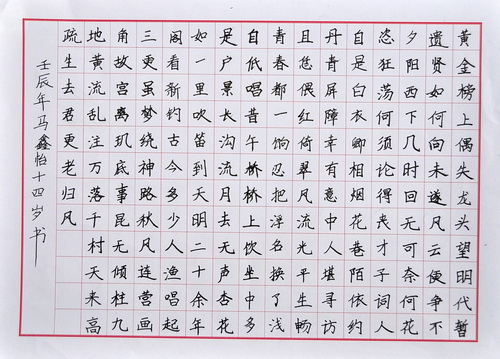 黄金榜上偶失龙头望明代暂
遗贤如何向未遂风云便争不
夕阳西下几时回无可奈何花
恣狂荡何须论得丧才子词人
自是白衣卿相烟花巷陌依约
丹青屏障幸有意中人堪寻访
且偎红倚翠风流平生畅
青春都一饷忍把浮名换了浅
低唱昔午桥桥上饮坐中多
是长沟流月去无声杏花
如一里吹笛到天明二十余年
阁看新钓古今多少人渔唱起
三更虽梦绕神路秋风连营画
角故宫离玑底事昆无倾柱九
地黄流乱注万落千村天来高
疏生去君更老归风
壬辰年马鑫怡十四岁书